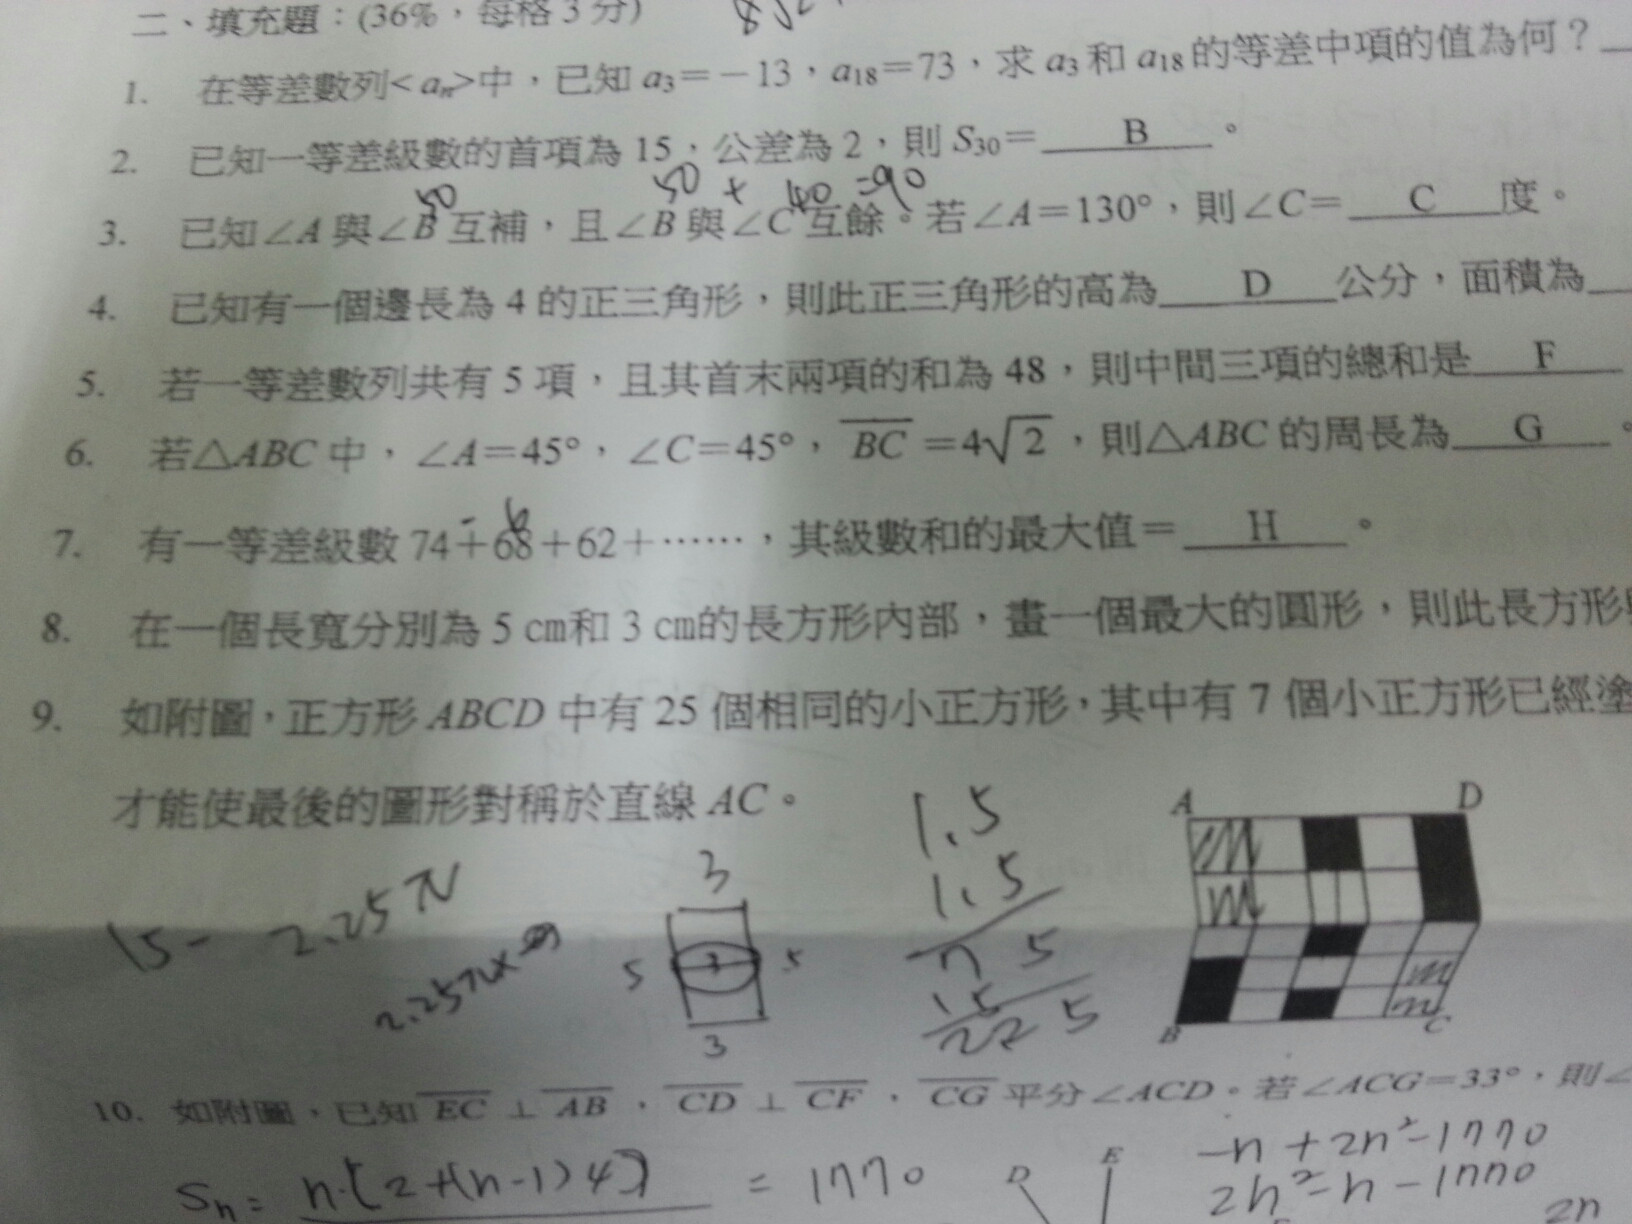 二、填充題：(36%，每格 3 分)
1. 在等差數列<an>中，已知 a3＝－13，a18＝73，求 a3 和 a18 的等差中項的值為何？
2. 已知一等差級數的首項為 15，公差為 2，則 S30＝ B 。
50 50 + 40 =90
3. 已知∠A 與∠B 互補，且∠B 與∠C 互餘。若∠A＝130°，則∠C＝ C 度。
4. 已知有一個邊長為 4 的正三角形，則此正三角形的高為 D 公分，面積為
5. 若一等差數列共有 5 項，且其首末兩項的和為 48，則中間三項的總和是 F
6. 若△ABC 中，∠A＝45°，∠C＝45°，BC＝4√2，則△ABC 的周長為 G 。
-6
7. 有一等差級數 74＋68＋62＋……，其級數和的最大值＝ H 。
8. 在一個長寬分別為 5 cm和 3 cm的長方形內部，畫一個最大的圓形，則此長方形
9. 如附圖，正方形 ABCD 中有 25 個相同的小正方形，其中有 7 個小正方形已經塗
才能使最後的圖形對稱於直線 AC。
A D
1.5
1.5
75
15
225
3
15- 2.25π
5 3 5
2.25π×
3
B C
10. 如附圖，已知 EC ⊥ AB，CD ⊥ CF，CG 平分∠ACD。若∠ACG＝33°，則∠
-n+2n²-1770
Sn= n·[2+(n-1)4] = 1770
D E
2n²-n-1770
2n